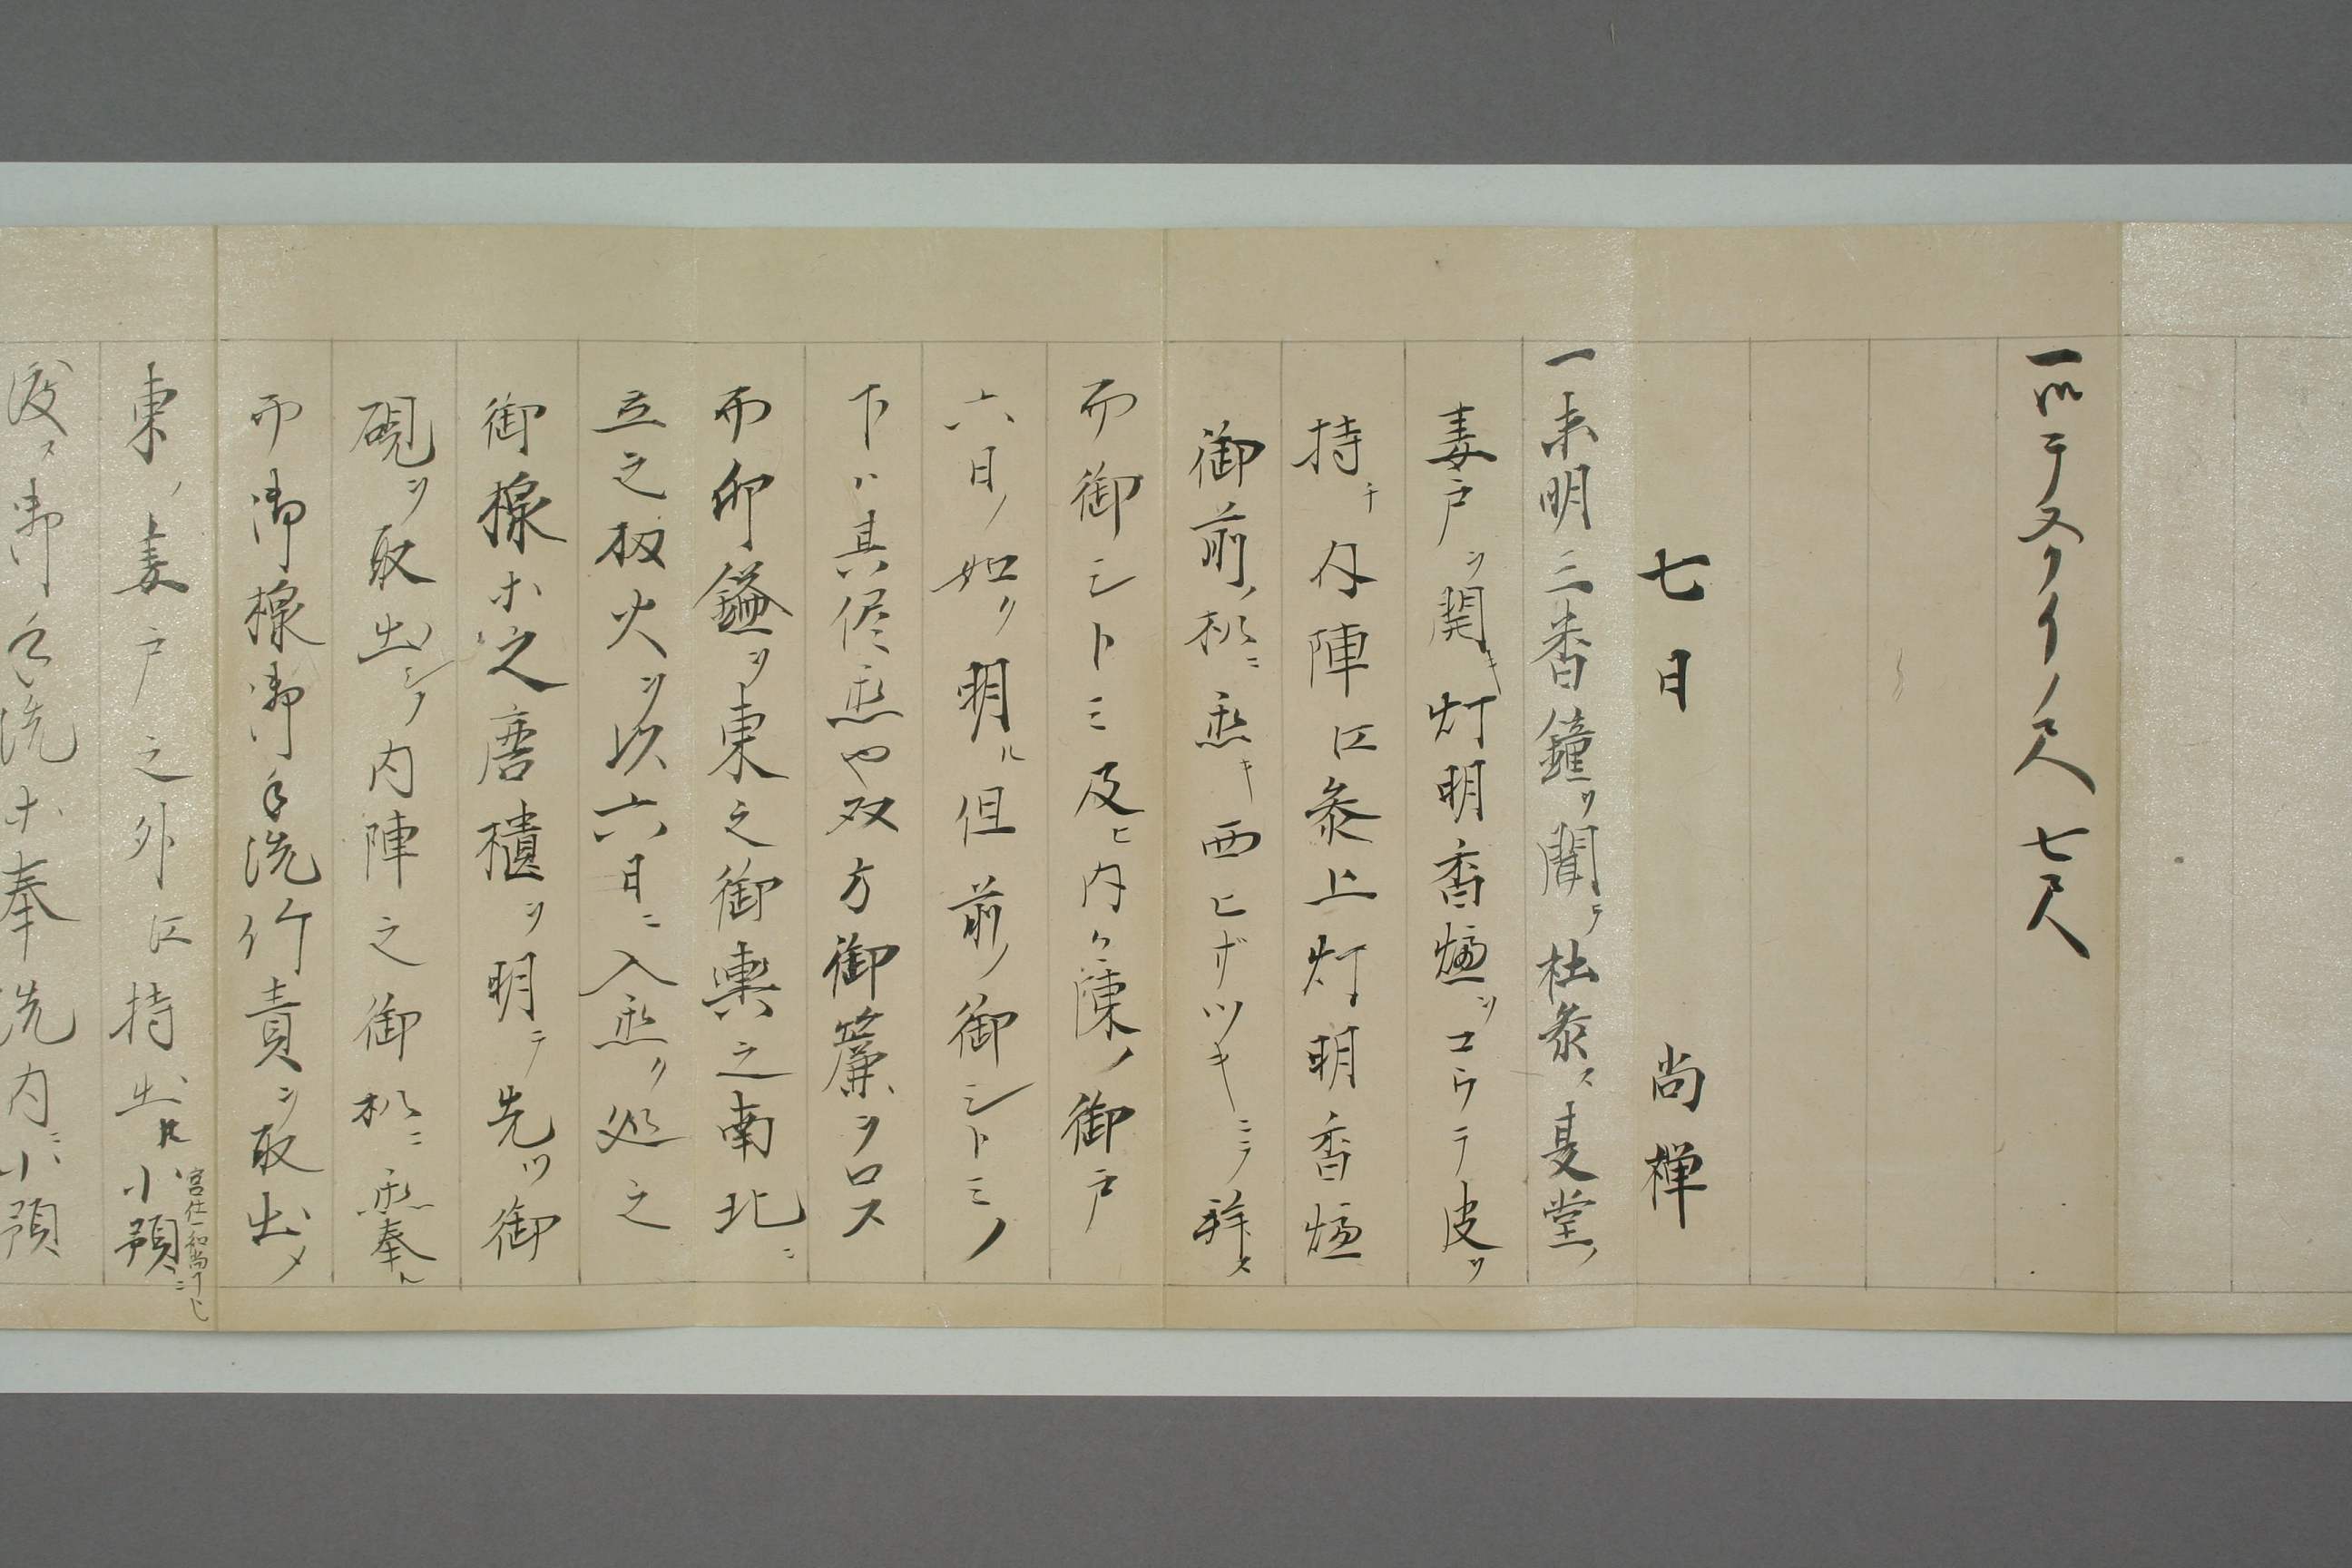 一御テヌクイノ尺七尺
七日 尚禅
一未明三番鐘ヲ聞テ社参ス夏堂ノ
妻戸ヲ開キ灯明香炉ヲコウテ皮ヲ
持チ内陣江参上灯明香炉
御前ノ机ニ置キ西ヒザツキニテ拝ス
而御シトミ及ヒ内々陳ノ御戸
六日ノ如ク明ル但前ノ御シトミノ
下ハ其侭置也双方御簾ヲロス
而御鎰ヲ東之御輿之南北ニ
立之扨火ヲ以六日ニ入置ク処之
御櫋ホ之唐櫃ヲ明テ先ツ御
硯ヲ取出シテ内陣之御机ニ置奉ル
而御櫋御手洗竹責ヲ取出メ
東ノ妻戸之外江持出小預ニ
宮仕一和尚
渡ス御手洗ホ奉洗内ニ小預